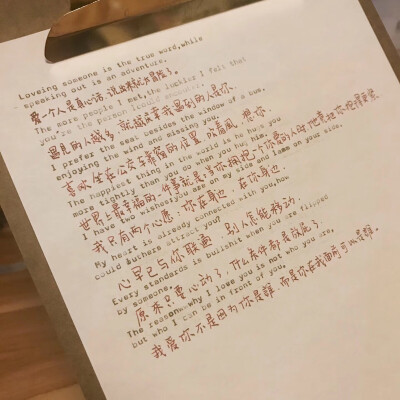 Loveing someone is the true word,while
speaking out is an adventure.
爱一个人是真心话，说出来就大冒险了。
The more people I met,the luckier I felt that
you're the person I could encounter.
遇见的人越多，就越庆幸我遇到的人是你
I prefer the seat besides the window of a bus,
enjoying the wind and missing you.
喜欢坐在公交车靠窗的位置，吹着风，想你。
The happiest thing in the world is he hugs you
more tightly when you do when you hug him.
世界上最幸福的一件事就是当你拥抱一个你爱的人时，他竟把你抱得更紧
I have two wishes:you are on my side and I am on your side.
我只有两个心愿：你在身边，在你身边。
My heart is already connected with you,how
could buthers attract you?
心早已与你联通，别人怎能移动。
Every standards is bullshit when you are flipped
by someone.
原来只要心动了，什么条件都是放屁了
The reason why I love you is not who you are,
but who I can be in front of you.
我爱你不是因为你是谁，而是你在我面前可以是谁。